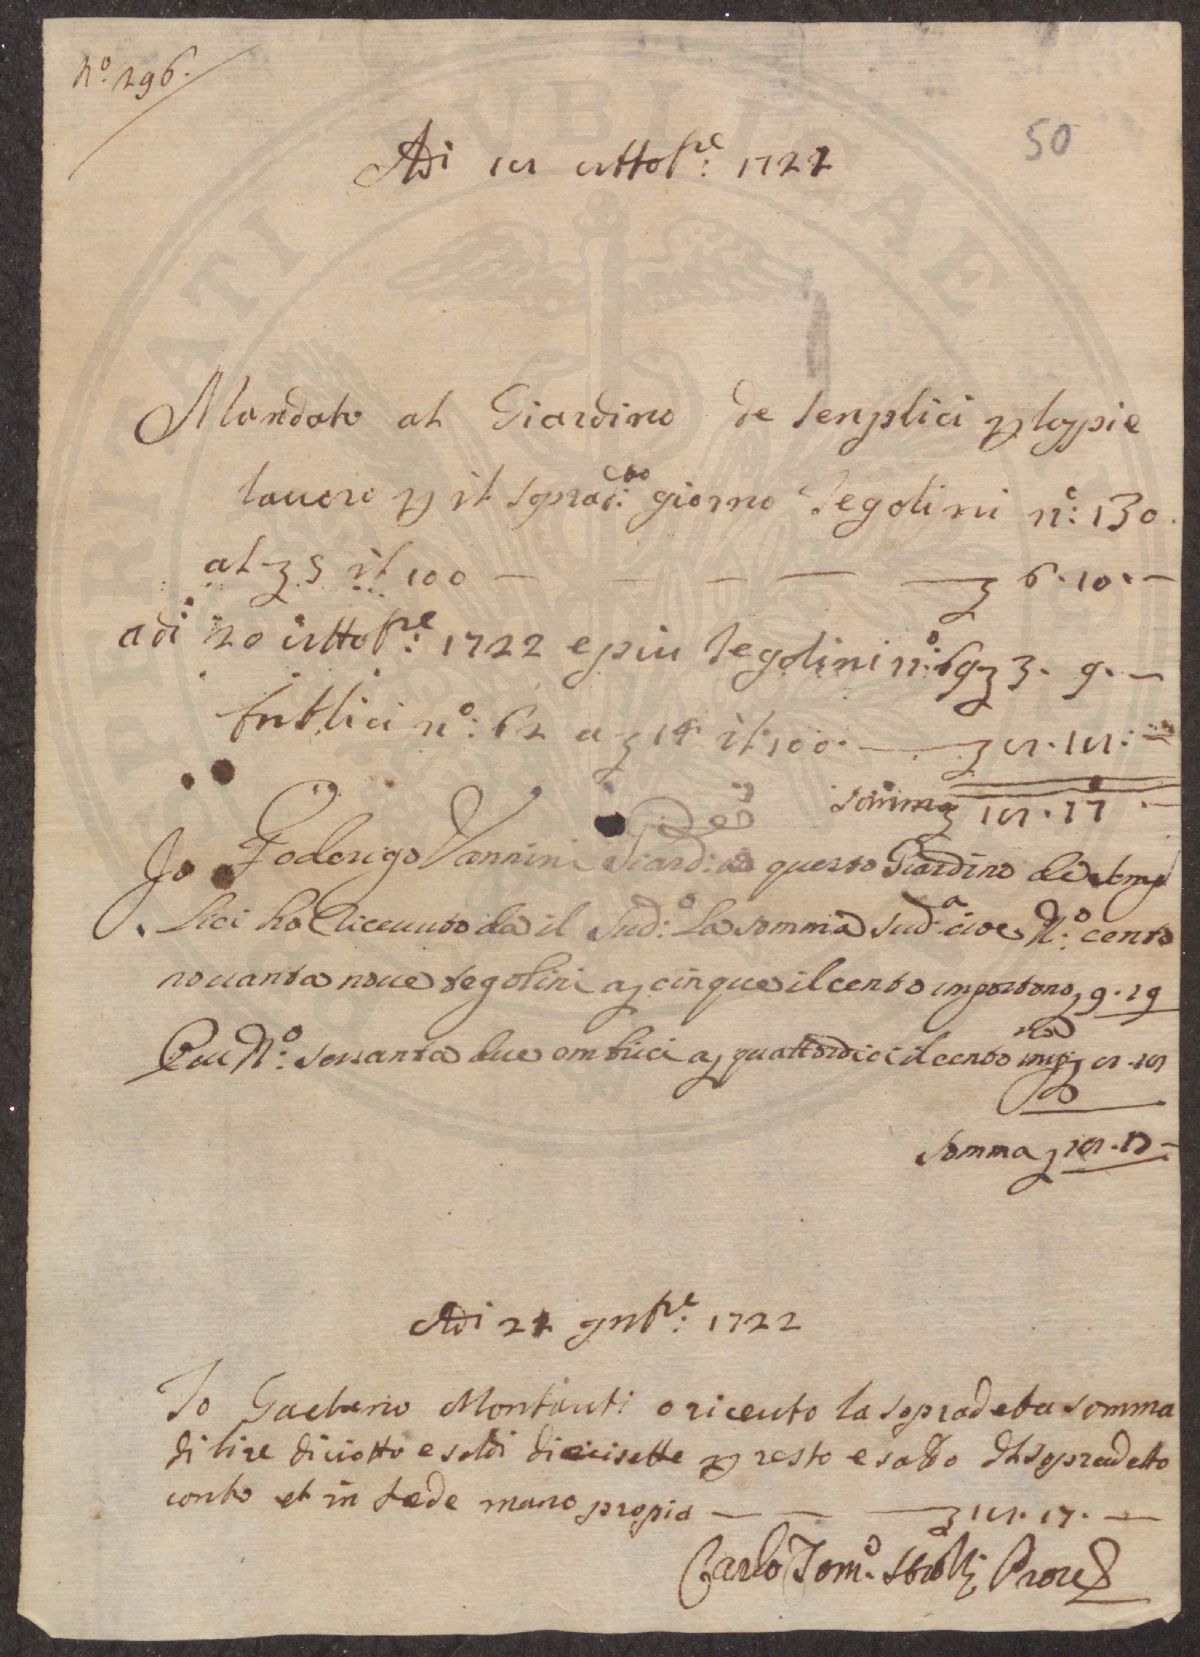 N.º 296.
50
Adi 18 ottobre: 1722
Mandato al Giardino de Senplici p loppie
lavoro p il sopradito: giorno Tegolini nº: 130
al 3 5 il 100 — — — — — 3 6. 10. —
adi 20 ottobre: 1722 e piu Tegolini nº: 69 3 3. 9. —
Enblici nº: 62 a 3 14 il 100. — 3 8. 18. —
Somma 3 18. 17. —
Io Foderigo Vannini Giard: di questo Giardino de Semp
lici ho Riceuuto da il Sud:º La somma Sud.ª cioe Nº: cento
nouanta noue tegolini a 3 cinque il cento importono 3 9. 19
E piu Nº: sessanta due embrici a 3 quattordici il cento imp: no 3 8. 18
Somma 3 18. 17 —
Adi 24 gnbre: 1722
Io Gaetano Montauti o riceuto la sopradetta somma
di lire diciotto e soldi diecisette p resto e saldo del sopradetto
conto et in fede mano propia — — 3 18. 17. —
Carlo Tom.º Strozzi Prove
PIETATI PUBLICAE